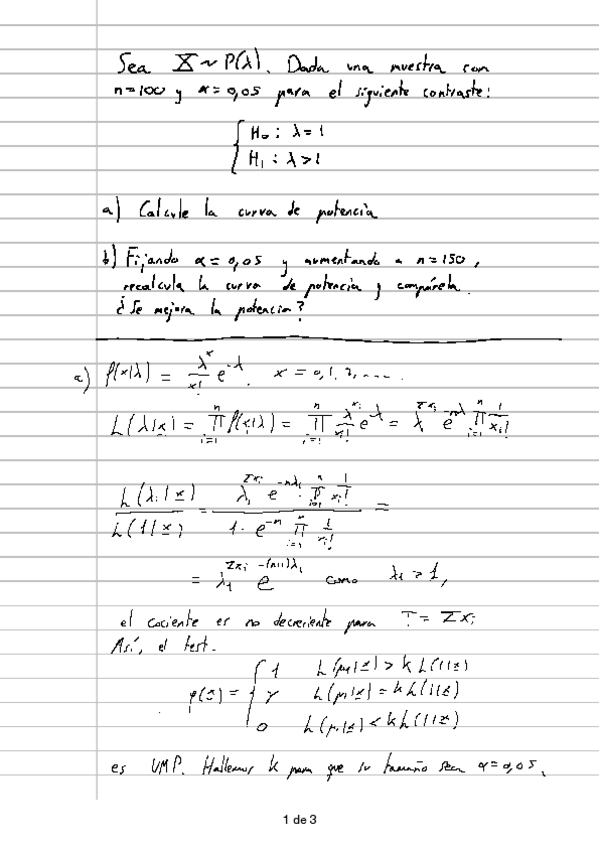 Sea X ~ P(λ). Dada una muestra con
n=100 y α=0,05 para el siguiente contraste:
{ H₀: λ=1
H₁: λ>1
a) Calcule la curva de potencia
b) Fijando α=0,05 y aumentando a n=150,
recalcula la curva de potencia y compárela.
¿Se mejora la potencia?
a) f(x|λ) = λ^x/x! e^-λ. x = 0,1,2,....
L(λ|x) = ∏_{i=1}^n f(xᵢ|λ) = ∏_{i=1}^n λ^{xᵢ}/xᵢ! e^-λ = λ^{Σxᵢ} e^{-nλ} ∏_{i=1}^n 1/xᵢ!
L(λ₁|x)/L(1|x) = λ₁^{Σxᵢ} e^{-nλ₁} ∏_{i=1}^n 1/xᵢ! / 1·e^{-n} ∏_{i=1}^n 1/xᵢ! =
= λ₁^{Σxᵢ} e como λ₁>1,
el cociente es no decreciente para T=Σxᵢ
Así, el test.
φ(x) = { 1 L(μ₁|x) > k L(1|x)
γ L(μ₁|x) = k L(1|x)
0 L(μ₁|x) < k L(1|x)
es UMP. Hallemos k para que su tamaño sea α=0,05.
1 de 3